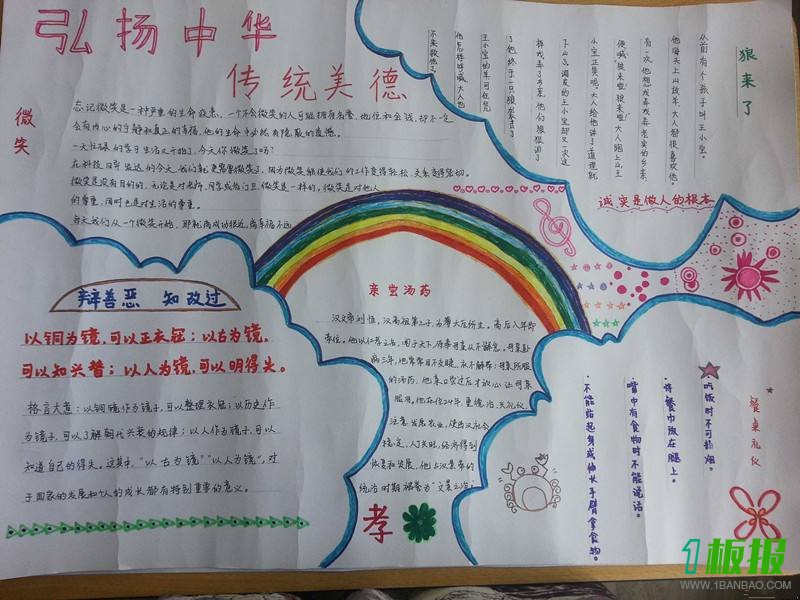 弘扬中华
传统美德
微笑
忘记微笑是一种严重的生命疾患，一个不会微笑的人可能拥有名誉、地位和金钱，却不一定
会有内心的宁静和真正的幸福，他的生命中必然有隐蔽的遗憾。
一天忙碌的学习生活又开始了，今天你微笑了吗？
在科技日异 的今天，我们就更需要微笑了，因为微笑能使我们的工作变得轻松，关系变得密切。
微笑是没有目的的，无论是对老师、同学或 微笑是一样的，微笑是对他人
的尊重，同时也是对生活的尊重。
每天我们从一个微笑开始，那就离成功很近，离幸福不远
狼来了
从前有个孩子叫王小宝。
他每天上山放羊，大人都很喜欢他。
有一次，他想戏弄戏弄老实的乡亲，
便喊“狼来啦！狼来啦！”大人跑上山，王
小宝正笑呢。大人给他讲了道理就
下山了。调皮的王小宝却又一次这
样戏弄了乡亲，他们狠狠训
了他。终于，一只狼发来了
王小宝的羊
他怎样呼喊，大人也
不来救他了。
诚实是做人的根本
辩善恶 知改过
以铜为镜，可以正衣冠；以古为镜，
可以知兴替；以人为镜，可以明得失。
格言大意：以铜镜作为镜子，可以整理衣冠；以历史作
为镜子，可以了解朝代兴衰的规律；以人作为镜子，可以
知道自己的得失。这其中，“以古为镜”“以人为镜”，对
于国家的发展和个人的成长都有特别重要的意义。
亲尝汤药
汉文帝刘恒，汉高祖第三子，为薄太后所生。高后八年即
帝位。他以仁孝之名，闻于天下，侍奉母亲从不懈怠。母亲卧
病三年，他常常目不交睫，衣不解带；母亲所服
的汤药，他亲口尝过后才放心让母亲
服用。他在位24年，重德治，兴礼仪
注意发展农业，使西汉社会
稳定，人丁兴旺，经济得到
恢复和发展，他与汉景帝的
统治时期被誉为“文景之治”
孝
餐桌礼仪
·吃饭时不可抽烟。
·将餐巾放在腿上。
·嘴中有食物时不能说话。
·不能站起身或伸长手臂拿食物。
1板报
WWW.1BANBAO.COM